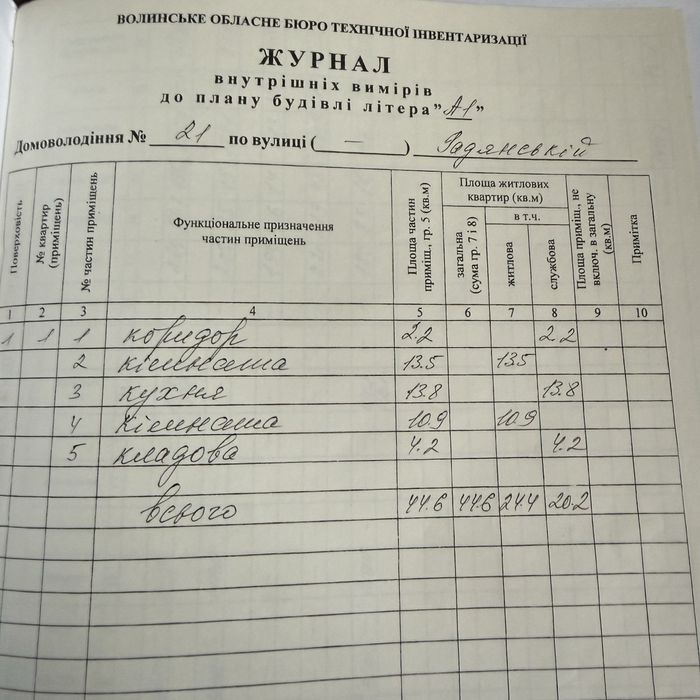 ВОЛИНСЬКЕ ОБЛАСНЕ БЮРО ТЕХНІЧНОЇ ІНВЕНТАРИЗАЦІЇ
ЖУРНАЛ
внутрішніх вимірів
до плану будівлі літера "А1"
Домоволодіння № 21 по вулиці ( — ) Радянській
Поверховість
№ квартир (приміщень)
№ частин приміщень
Функціональне призначення частин приміщень
Площа частин приміщ., гр. 5 (кв.м)
Площа житлових квартир (кв.м)
загальна (сума гр. 7 і 8)
в т.ч.
житлова
службова
Площа приміщ., не включ. в загальну (кв.м)
Примітка
1 2 3 4 5 6 7 8 9 10
1 1 1 коридор 2.2 2.2
2 кімната 13.5 13.5
3 кухня 13.8 13.8
4 кімната 10.9 10.9
5 кладова 4.2 4.2
всього 44.6 44.6 24.4 20.2